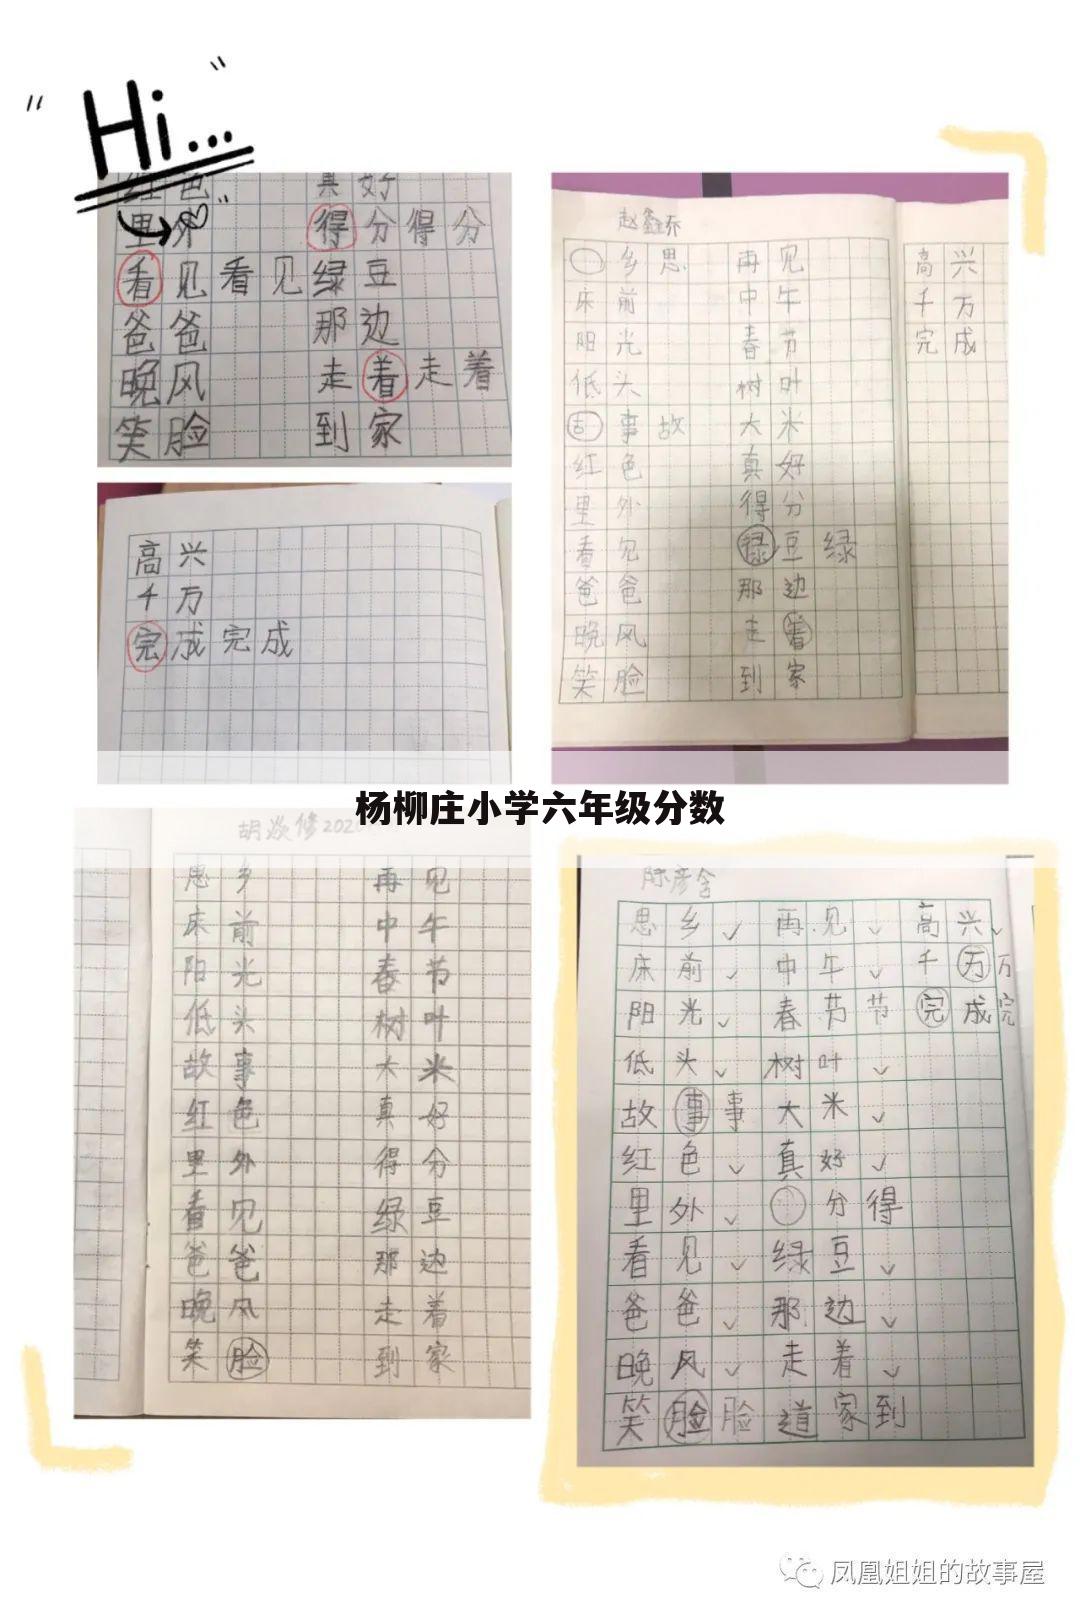 Hi...
红色 真好
里外 得分得分
看见看见绿豆
爸爸 那边
晚风 走着走着
笑脸 到家
高兴
千万
完成完成
赵鑫乔
乡思 再见 高兴
床前 中午 千万
阳光 春节 完成
低头 树叶
事故 大米
红色 真好
里外 得分
看见 豆绿
爸爸 那边
晚风 走着
笑脸 到家
杨柳庄小学六年级分数
胡 修202
思乡 再见
床前 中午
阳光 春节
低头 树叶
故事 大米
红色 真好
里外 得分
看见 绿豆
爸爸 那边
晚风 走着
笑脸 到家
陈彦
思乡 再见 高兴
床前 中午 千万万
阳光 春节节 完成完
低头 树叶
故事事 大米
红色 真好
里外 分得
看见 绿豆
爸爸 那边
晚风 走着
笑脸脸 道家到
凤凰姐姐的故事屋